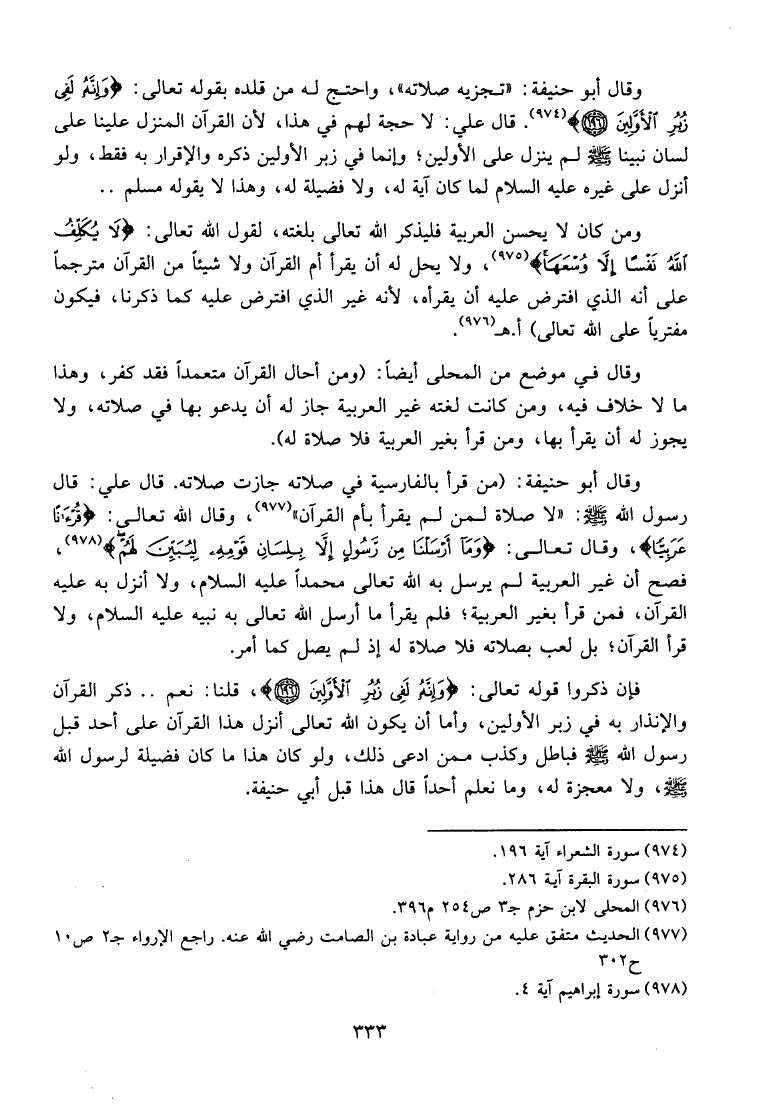 وقال أبو حنيفة: «تـجزيه صلاته»، واحتـج لـه من قلده بقوله تعالى: ﴿وَإِنَّهُ لَفِى
زُبُرِ ٱلْأَوَّلِينَ ۝١٩٦﴾(٩٧٤). قال علي: لا حجة لهم في هذا، لأن القرآن المنزل علينا على
لسان نبينا ﷺ لـم ينزل على الأولين؛ وإنما في زبر الأولين ذكره والإقرار به فقط، ولو
أنزل على غيره عليه السلام لما كان آية له، ولا فضيلة له، وهذا لا يقوله مسلم ..
ومن كان لا يحسن العربية فليذكر الله تعالى بلغته، لقول الله تعالى: ﴿لَا يُكَلِّفُ
ٱللَّهُ نَفْسًا إِلَّا وُسْعَهَا﴾(٩٧٥)، ولا يحل له أن يقرأ أم القرآن ولا شيئاً من القرآن مترجماً
على أنه الذي افترض عليه أن يقرأه، لأنه غير الذي افترض عليه كما ذكرنا، فيكون
مفترياً على الله تعالى) أ.هـ(٩٧٦).
وقال فـي موضع من المحلى أيضاً: (ومن أحال القرآن متعمداً فقد كفر، وهذا
ما لا خلاف فيه، ومن كانت لغته غير العربية جاز له أن يدعو بها في صلاته، ولا
يجوز له أن يقرأ بها، ومن قرأ بغير العربية فلا صلاة له).
وقال أبو حنيفة: (من قرأ بالفارسية في صلاته جازت صلاته. قال علي: قال
رسول الله ﷺ: «لا صلاة لـمن لـم يقرأ بأم القرآن»(٩٧٧)، وقال الله تعالـى: ﴿قُرْءَٰنًا
عَرَبِيًّا﴾، وقـال تـعـالـى: ﴿وَمَآ أَرْسَلْنَا مِن رَّسُولٍ إِلَّا بِلِسَانِ قَوْمِهِۦ لِيُبَيِّنَ لَهُمْ﴾(٩٧٨)،
فصح أن غير العربية لـم يرسل به الله تعالى محمداً عليه السلام، ولا أنزل به عليه
القرآن، فمن قرأ بغير العربية؛ فلم يقرأ ما أرسل الله تعالى به نبيه عليه السلام، ولا
قرأ القرآن؛ بل لعب بصلاته فلا صلاة له إذ لـم يصل كما أمر.
فإن ذكروا قوله تعالى: ﴿وَإِنَّهُ لَفِى زُبُرِ ٱلْأَوَّلِينَ ۝١٩٦﴾، قلنا: نعم .. ذكر القرآن
والإنذار به في زبر الأولين، وأما أن يكون الله تعالى أنزل هذا القرآن على أحد قبل
رسول الله ﷺ فباطل وكذب مـمن ادعى ذلك، ولو كان هذا ما كان فضيلة لرسول الله
ﷺ، ولا معجزة له، وما نعلم أحداً قال هذا قبل أبي حنيفة.
(٩٧٤) سورة الشعراء آية ١٩٦.
(٩٧٥) سورة البقرة آية ٢٨٦.
(٩٧٦) المحلى لابن حزم جـ٣ ص٢٥٤ م٣٩٦.
(٩٧٧) الحديث متفق عليه من رواية عبادة بن الصامت رضي الله عنه. راجع الإرواء جـ٢ ص١٠
ح٣٠٢
(٩٧٨) سورة إبراهيم آية ٤.
٣٣٣